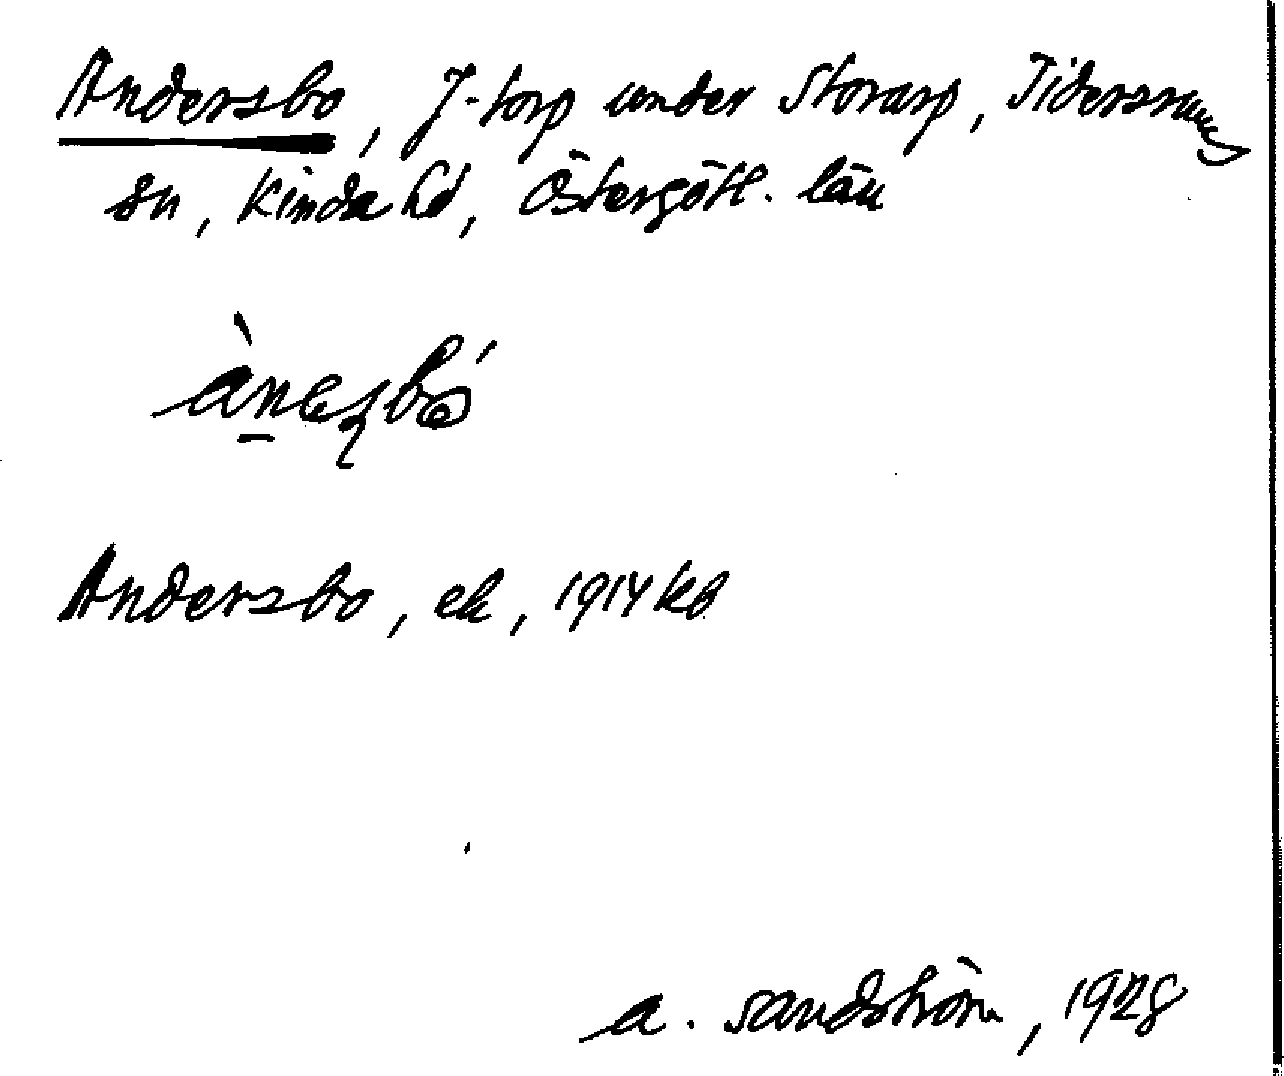 Andersbo, J-torp under Storarp, Tidersrums
sn, Kinda hd, Östergötl. län
Andersbo, ek, 1914 kb
A. Sandström, 1928